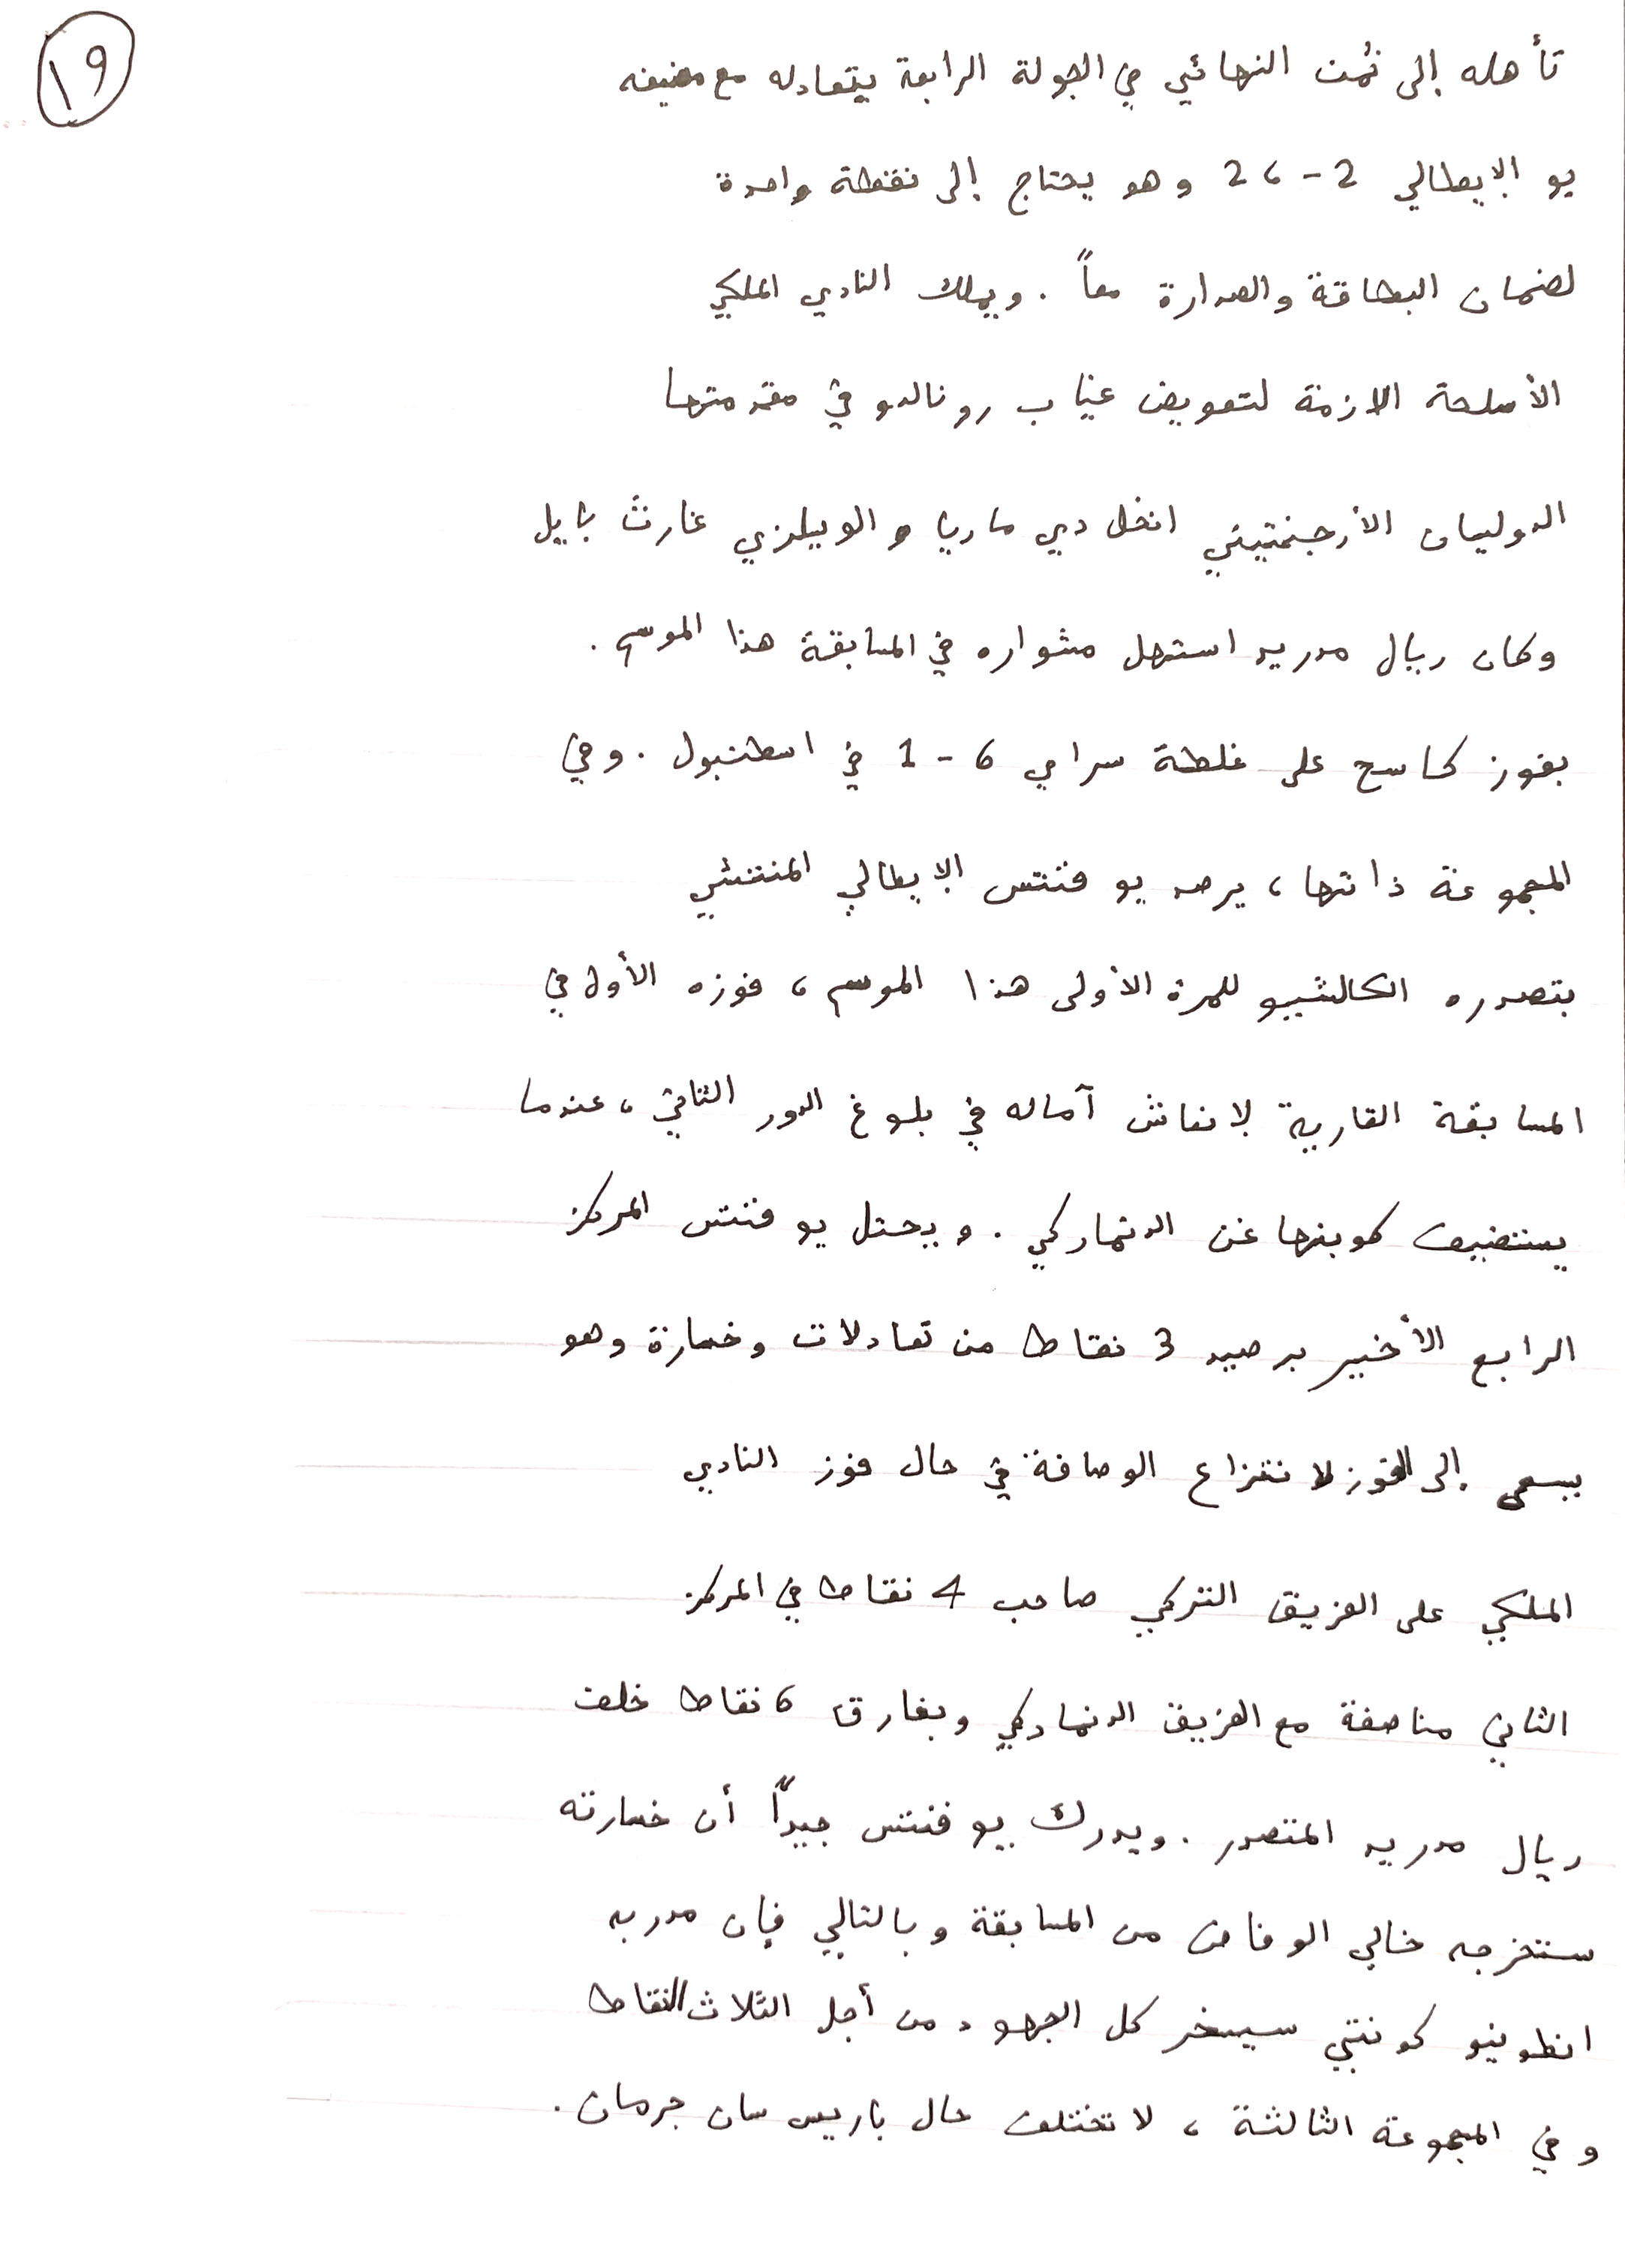 ١٩
تأهله إلى ثمن النهائي في الجولة الرابعة بتعادله مع مضيفه
يو الإيطالي 2-2، وهو يحتاج إلى نقطة واحدة
لضمان البطاقة والصدارة معاً. ويملك النادي الملكي
الأسلحة الازمة لتعويض غياب رونالدو في مقدمتها
الدوليان الأرجنتيني انخل دي ماريا والويلزي غاريث بايل
وكان ريال مدريد استهل مشواره في المسابقة هذا الموسم.
بفوز كاسح على غلطة سراي 6-1 في اسطنبول. وفي
المجموعة ذاتها، يرصد يوفنتس الإيطالي المنتشي
بتصدره الكالشيو للمرة الأولى هذا الموسم، فوزه الأول في
المسابقة القارية لإنعاش آماله في بلوغ الدور الثاني، عندما
يستضيف كوبنهاغن الدنماركي. ويحتل يوفنتس المركز
الرابع الأخير برصيد 3 نقاط من تعادلات وخسارة وهو
يسعى إلى الفوز لانتزاع الوصافة في حال فوز النادي
الملكي على الفريق التركي صاحب 4 نقاط في المركز
الثاني مناصفة مع الفريق الدنماركي وبفارق 6 نقاط خلف
ريال مدريد المتصدر. ويدرك يوفنتس جيداً أن خسارته
ستخرجه خالي الوفاض من المسابقة وبالتالي فإن مدربه
انطونيو كونتي سيسخر كل الجهود من أجل الثلاث النقاط
وفي المجموعة الثالثة، لا تختلف حال باريس سان جرمان.